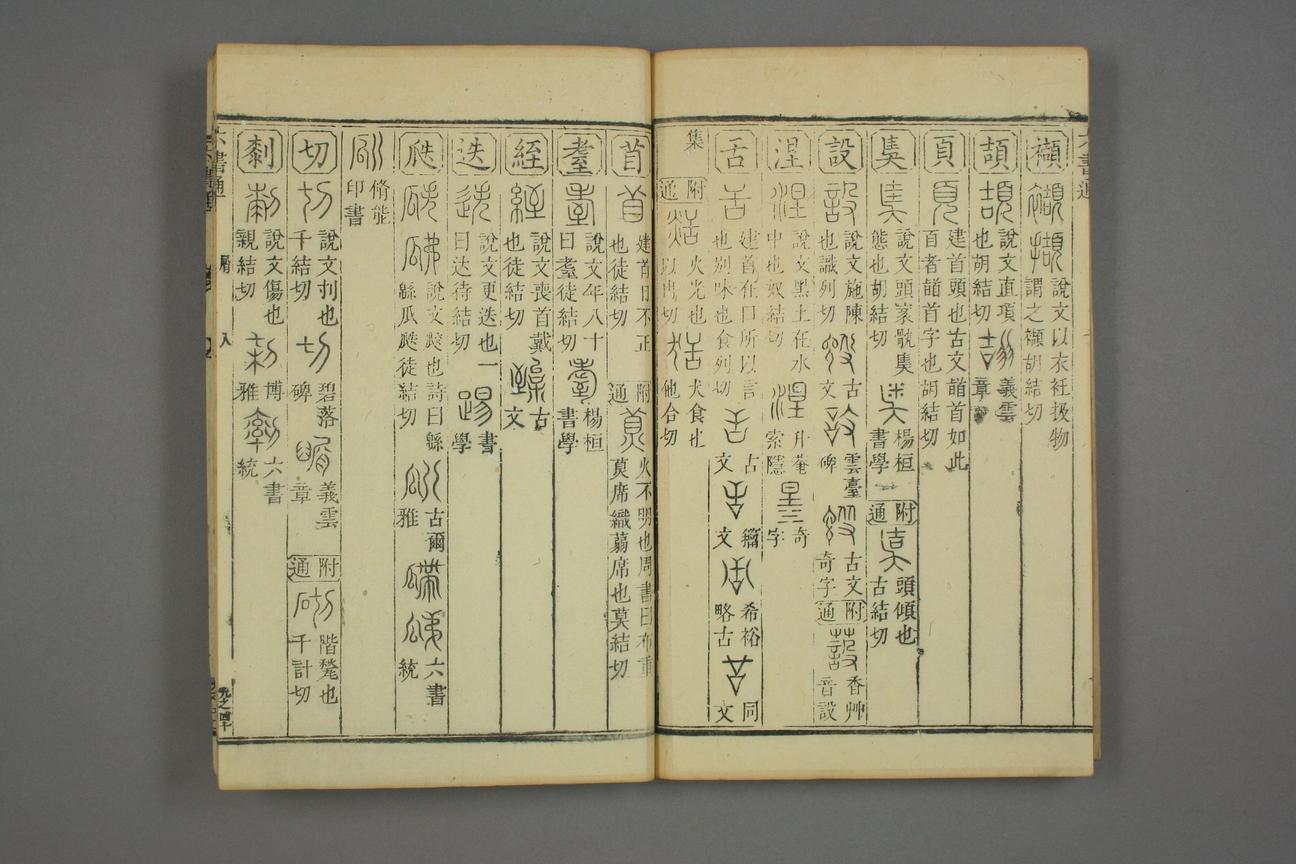 襭 說文以衣衽扱物謂之襭胡結切
頡 說文直項也胡結切 義雲章
頁 建首頭也古文䭫首如此百者䭫首字也胡結切
奊 說文頭衺骩奊態也胡結切 楊桓書學 附通 頭傾也古結切
設 說文施陳也識列切 古文 雲臺碑 古文奇字 附通 蔎 香艸音設
涅 說文黑土在水中也奴結切 升菴索隱 奇字
舌 建首在口所以言也別味也食列切 古文 籀文 希裕略古 同文
集 附通 火光也以冉切 犬食也他合切
苜 建首目不正也徒結切 附通 火不明也周書曰布重莫席織蒻席也莫結切
耋 說文年八十曰耋徒結切 楊桓書學
絰 說文喪首戴也徒結切 古文
迭 說文更迭也一曰达待結切 書學
瓞 說文㼐也詩曰緜緜瓜瓞徒結切 古爾雅 六書統
脩能印書
切 說文刌也千結切 碧落碑 義雲章 附通 砌 階甃也千計切
剺 說文傷也親結切 博雅 六書統
六書通 屑 入
九之四十